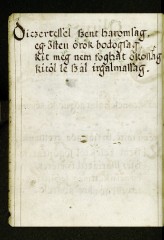 Diczertessel szent haromsag,
eg Isten örök bodogsag,
kit meg nem foghat okossag
kitöl le szal irgalmassag.